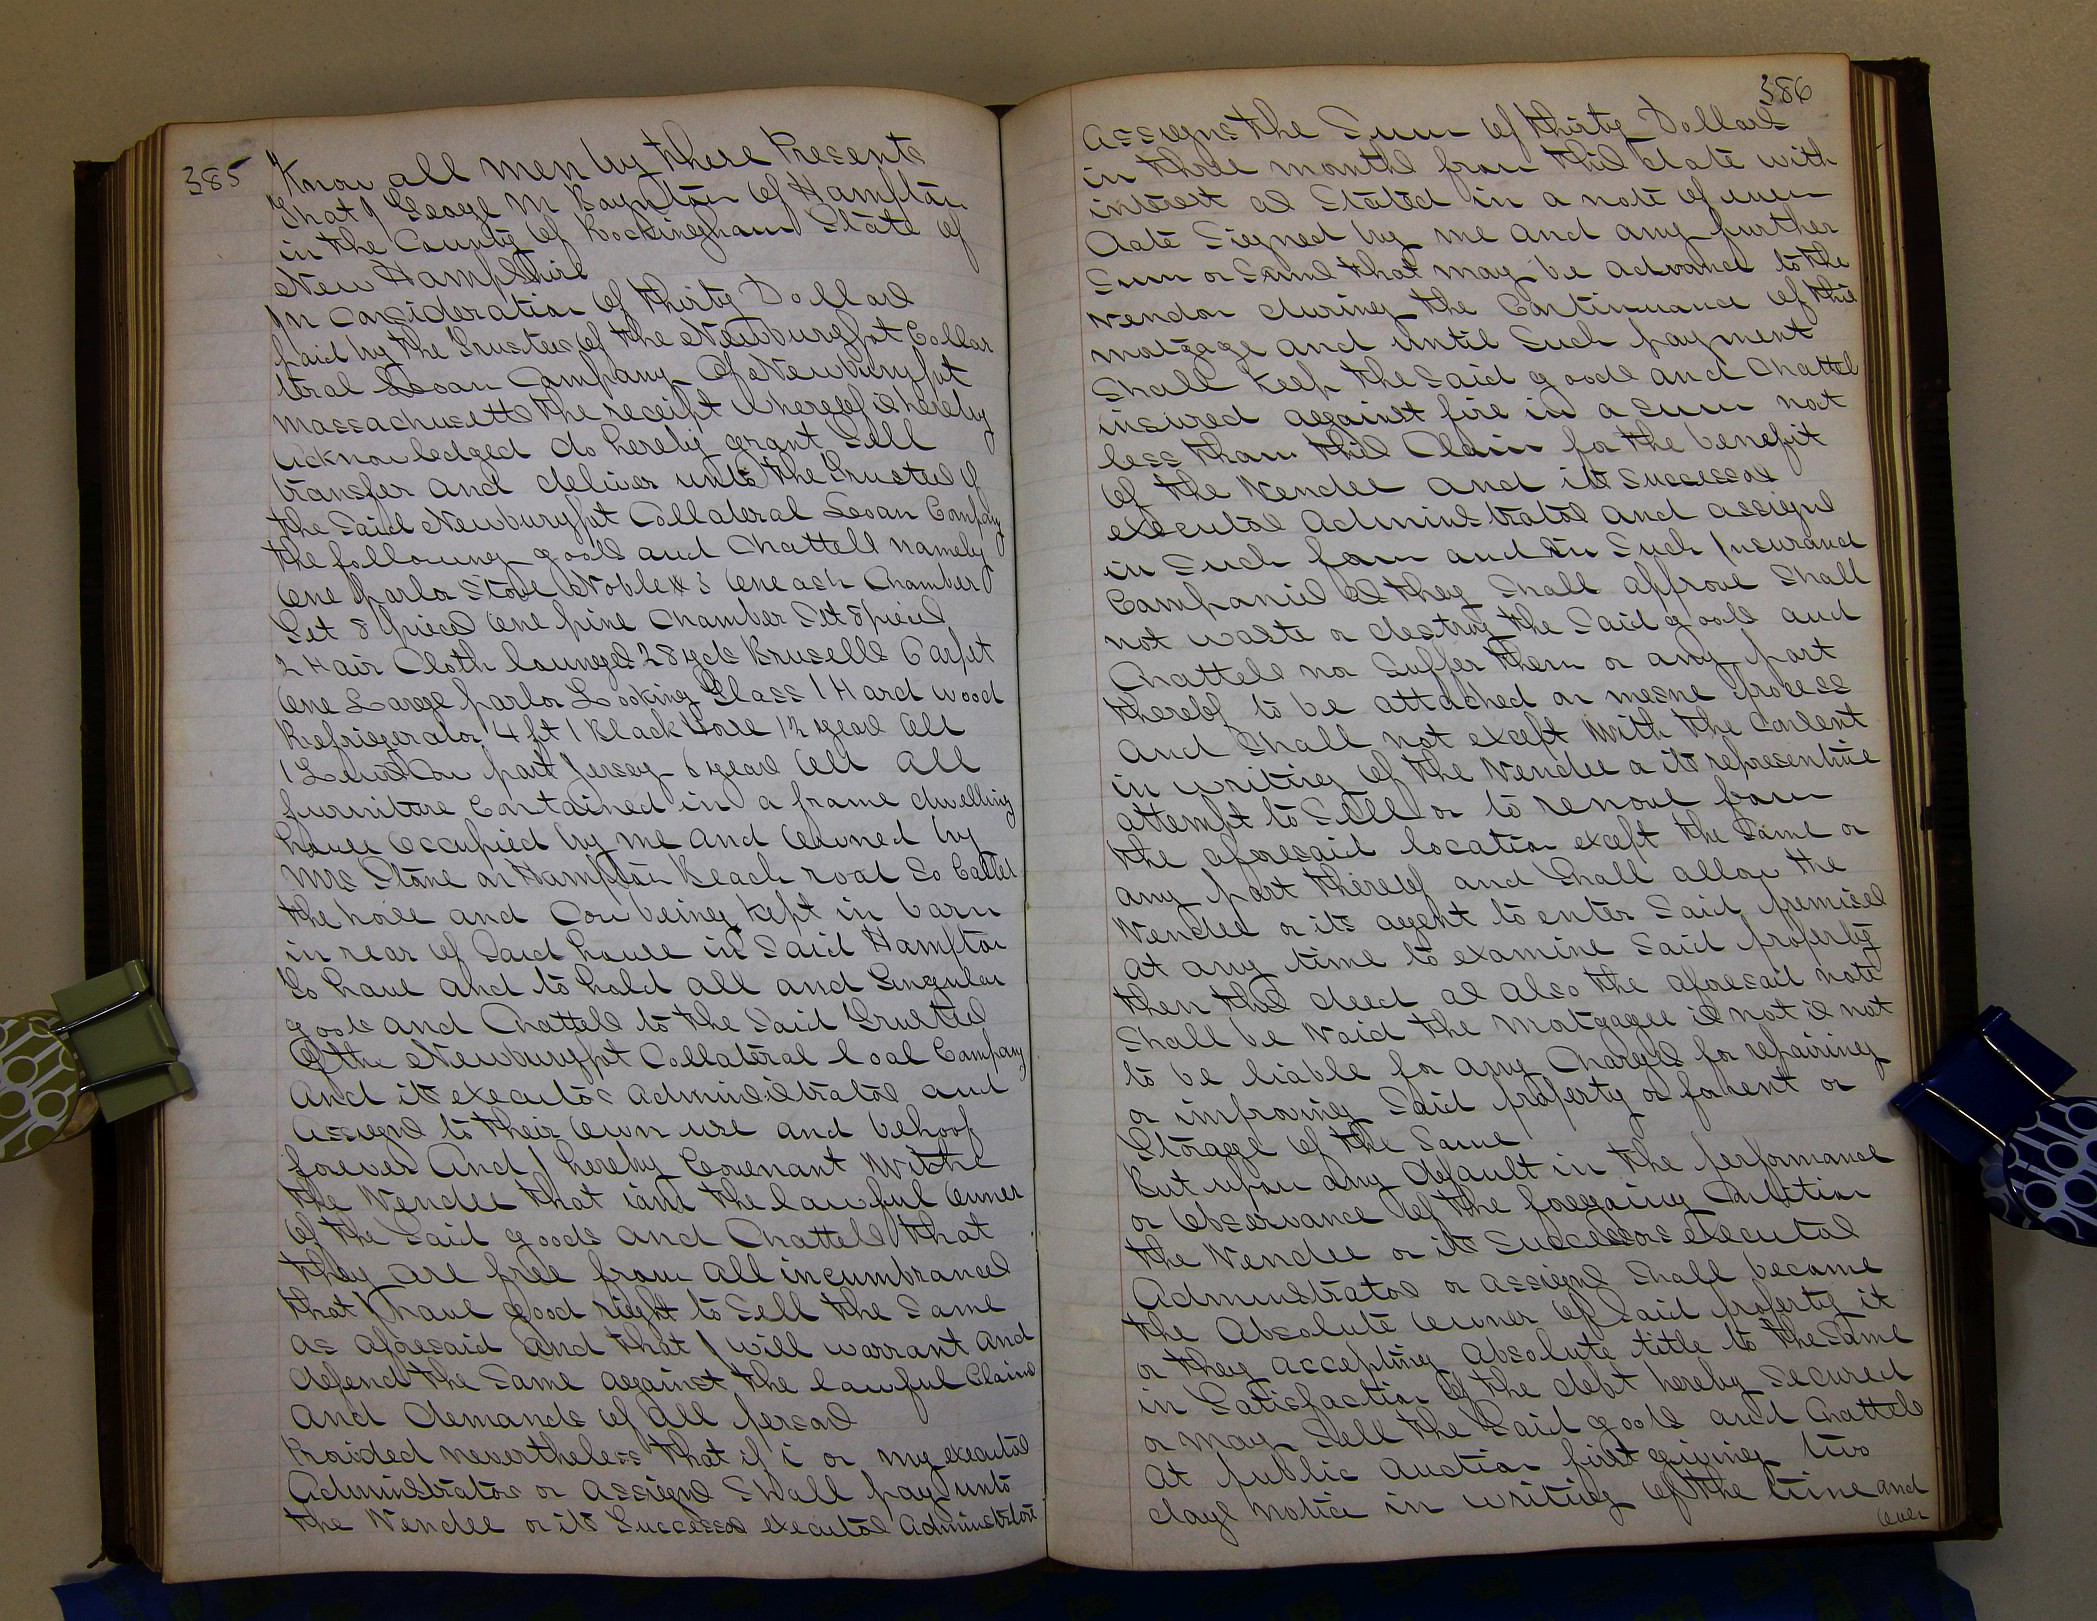 385
Know all men by these Presents
that I George M Boynton of Hampton
in the County of Rockingham State of
New Hampshire
In Consideration of thirty Dollars
paid by the Trustees of the Newburyport Collat
teral Loan Company of Newburyport
Massachusetts the receipt whereof is hereby
acknowledged do hereby grant Sell
transfer and deliver unto the Trustees of
the Said Newburyport Collateral Loan Company
the following goods and Chattels namely
One parlor Stove Noble # 3 One ash Chamber
Set 8 pieces One pine Chamber Set 8 pieces
2 Hair Cloth lounges 28 yds Brusells Carpet
One Large parlor Looking Glass 1 Hard wood
Refrigerator 4 ft 1 Black Horse 12 years Old
1 Cow part Jersey 6 years Old All
furniture Contained in a frame dwelling
house Occupied by me and Owned by
Mrs on Hampton Beach road So Called
the horse and Cow being kept in barn
in rear of Said house in Said Hampton
To have and to hold all and Singular
goods and Chattels to the Said Trustees
Of the Newburyport Collateral Loal Company
And its executors administrators and
Assigns to their Own use and behoof
forever And I hereby Covenant With the
the Vendee that I am the lawful Owner
of the Said goods and Chattels that
they are free from all incumbrances
that I have good right to Sell the Same
as aforesaid and that I will warrant and
defend the Same against the lawful Claims
and demands of all persons
Provided nevertheless that if i or my executors
Administrators or assigns Shall pay unto
the Vendee or its Successors executors administrators
386
assigns the Sum of thirty Dollars
in three months from this date with
interest as Stated in a note of even
date Signed by me and any further
Sum or Sums that may be advance to the
Vendor during the Continuance of this
mortgage and until Such payment
Shall keep the said goods and Chattels
insured against fire in a sum not
less than this Claim for the benefit
of the Vendee and its Successors
executors administrators and assigns
in Such form and in Such Insurance
Companies as they Shall approve Shall
not waste or destroy the Said goods and
Chattels nor Suffer them or any part
thereof to be attached on mesne process
and Shall not except With the Consent
in writing of the Vendee or its representitive
attempt to Sell or to remove from
the aforesaid location except the Same or
any part thereof and Shall allow the
Vendee or its agent to enter Said premises
at any time to examine Said property
then this deed as also the aforesaid note
Shall be Void the Mortgagee is not is not
to be liable for any Charges for repairing
or improving Said property or for rent or
Storage of the Same
But upon any default in the performance
or Observance of the foregoing Condition
the Vendee or its Successors executors
Administrators or assigns Shall become
the Absolute Owner of Said property it
or they accepting absolute title to the Same
in Satisfaction of the debt hereby Secured
or may Sell the Said goods and Chattels
at public Auction first giving two
days notice in writing of the time and
Over